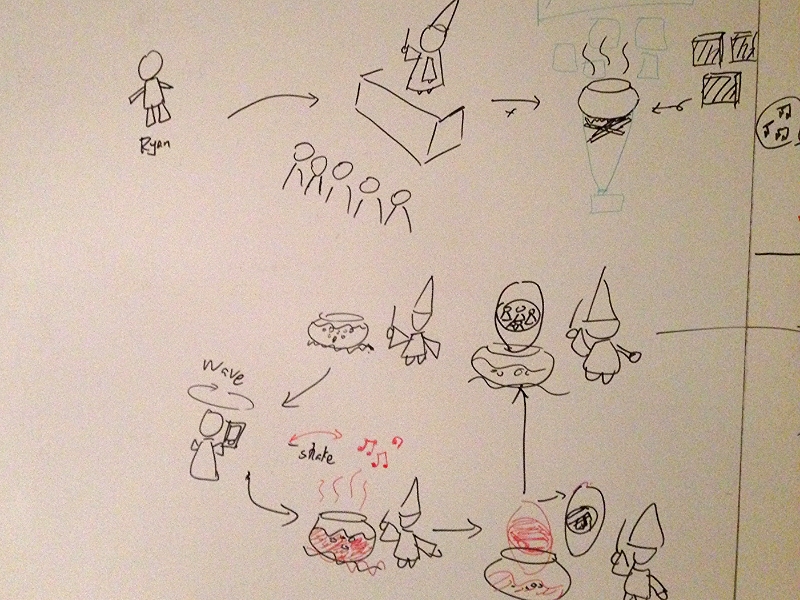 Ryan
wave
shake